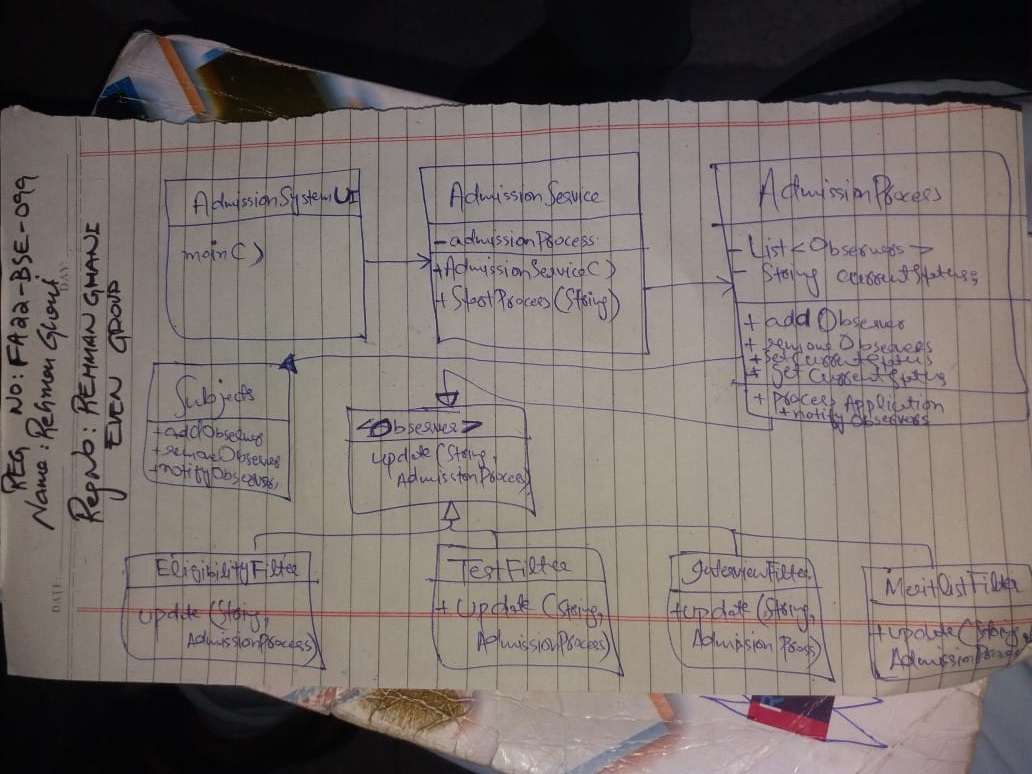 REG No: FA22-BSE-099
Name: Rehman Ghani
Reg No: REHMAN GHANI
EVEN GROUP
DATE
AdmissionSystemUI
main()
AdmissionService
- admissionProcess
+ AdmissionService()
+ StartProcess(String)
AdmissionProcess
- List<Observers>
- String currentStatus;
+ addObserver
+ removeObservers
+ setcurrentStatus
+ getCurrentStatus
+ process Application
+ notify Observers
Subjects
+ addObserver
+ removeObserver
+ notifyObserver,
<Observer>
update(String,
AdmissionProcess)
EligibilityFilter
update(String,
AdmissionProcess)
TestFilter
+ Update(String,
AdmissionProcess)
InterviewFilter
+ update(String,
Admission Process)
MeritlistFilter
+ update(String,
AdmissionProcess